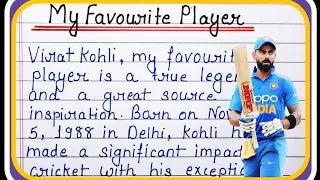 My Favourite Player
Virat Kohli, my favourite
player is a true lege
and a great source
inspiration. Barn on No
5, 1988 in Delhi, Kohli h
made a significant impac
cricket with his excepti
oppo
INDIA